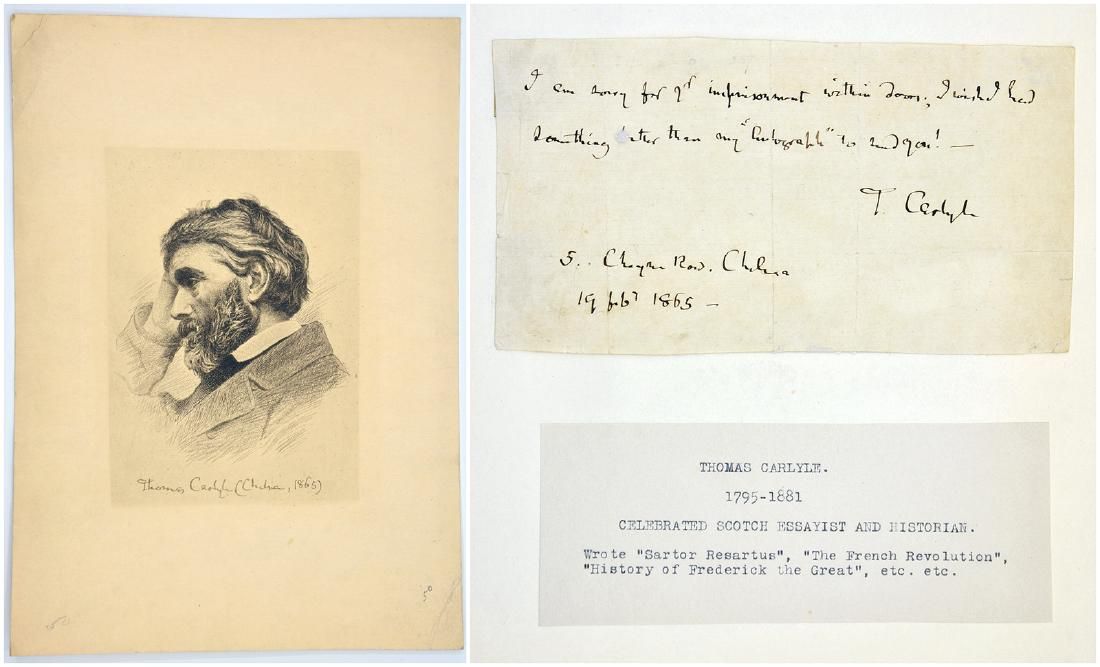 Thomas Carlyle (Chelsea, 1865)
50
I am sorry for yr imprisonment within doors; I wish I had
something other than my "Autograph" to send you! —
T. Carlyle
5.. Cheyne Row. Chelsea
19 feby 1865 —
THOMAS CARLYLE.
1795-1881
CELEBRATED SCOTCH ESSAYIST AND HISTORIAN.
Wrote "Sartor Resartus", "The French Revolution",
"History of Frederick the Great", etc. etc.